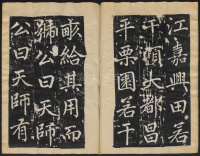 江嘉興田若
干頃大都昌
平栗園若干
畝給其用而
號公曰天師
公曰天師有